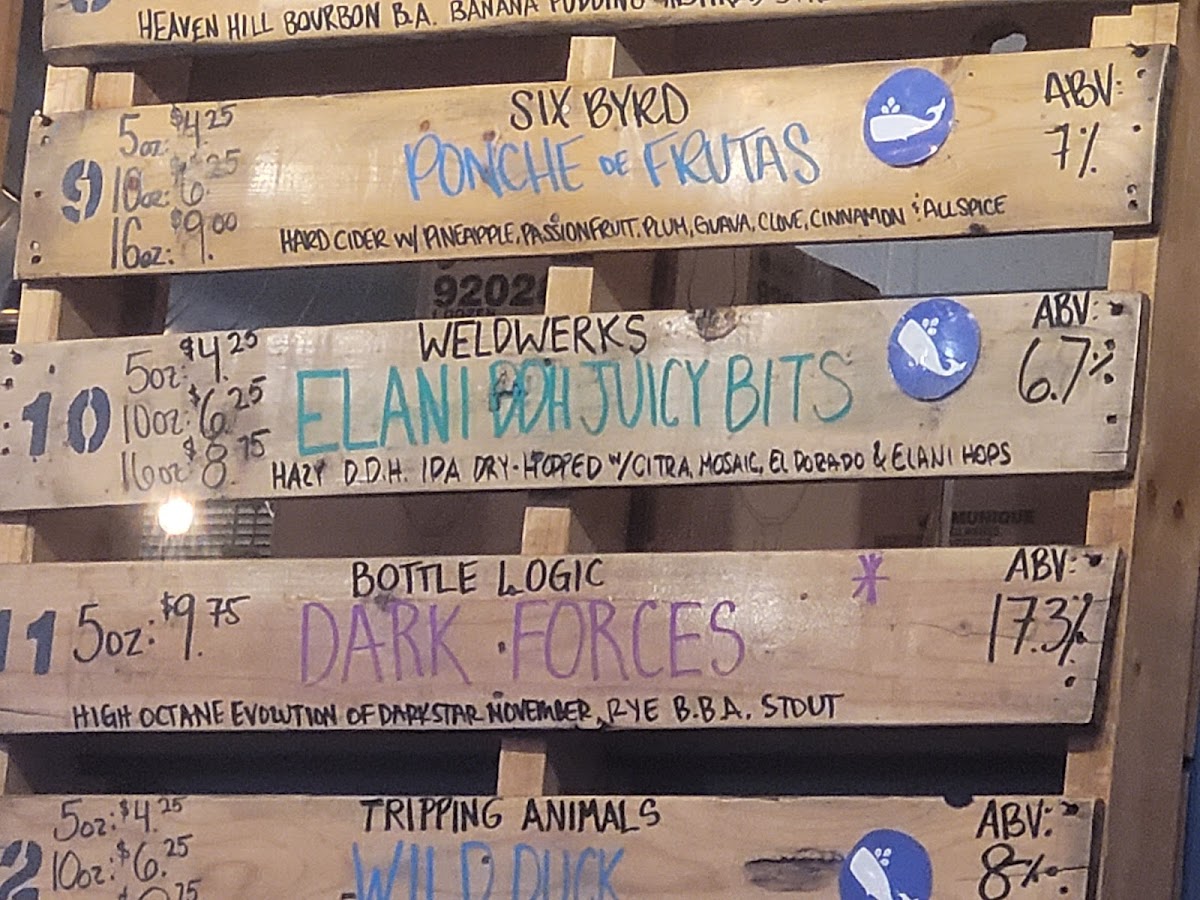 HEAVEN HILL BOURBON B.A. BANANA PUDDING
9
5oz: $4.25
10oz: $6.25
16oz: $9.00
SIX BYRD
PONCHE DE FRUTAS
HARD CIDER W/ PINEAPPLE, PASSIONFRUIT, PLUM, GUAVA, CLOVE, CINNAMON & ALLSPICE
ABV:
7%
9202
10
5oz: $4.25
10oz: $6.25
16oz $8.75
WELDWERKS
ELANI DDH JUICY BITS
HAZY D.D.H. IPA DRY-HOPPED W/ CITRA, MOSAIC, EL DORADO & ELANI HOPS
ABV:
6.7%
MUNIQUE
11
5oz: $9.75
BOTTLE LOGIC
DARK FORCES
*
HIGH OCTANE EVOLUTION OF DARKSTAR NOVEMBER, RYE B.B.A. STOUT
ABV:
17.3%
2
5oz: $4.25
10oz: $6.25
TRIPPING ANIMALS
WILD DUCK
ABV:
8%